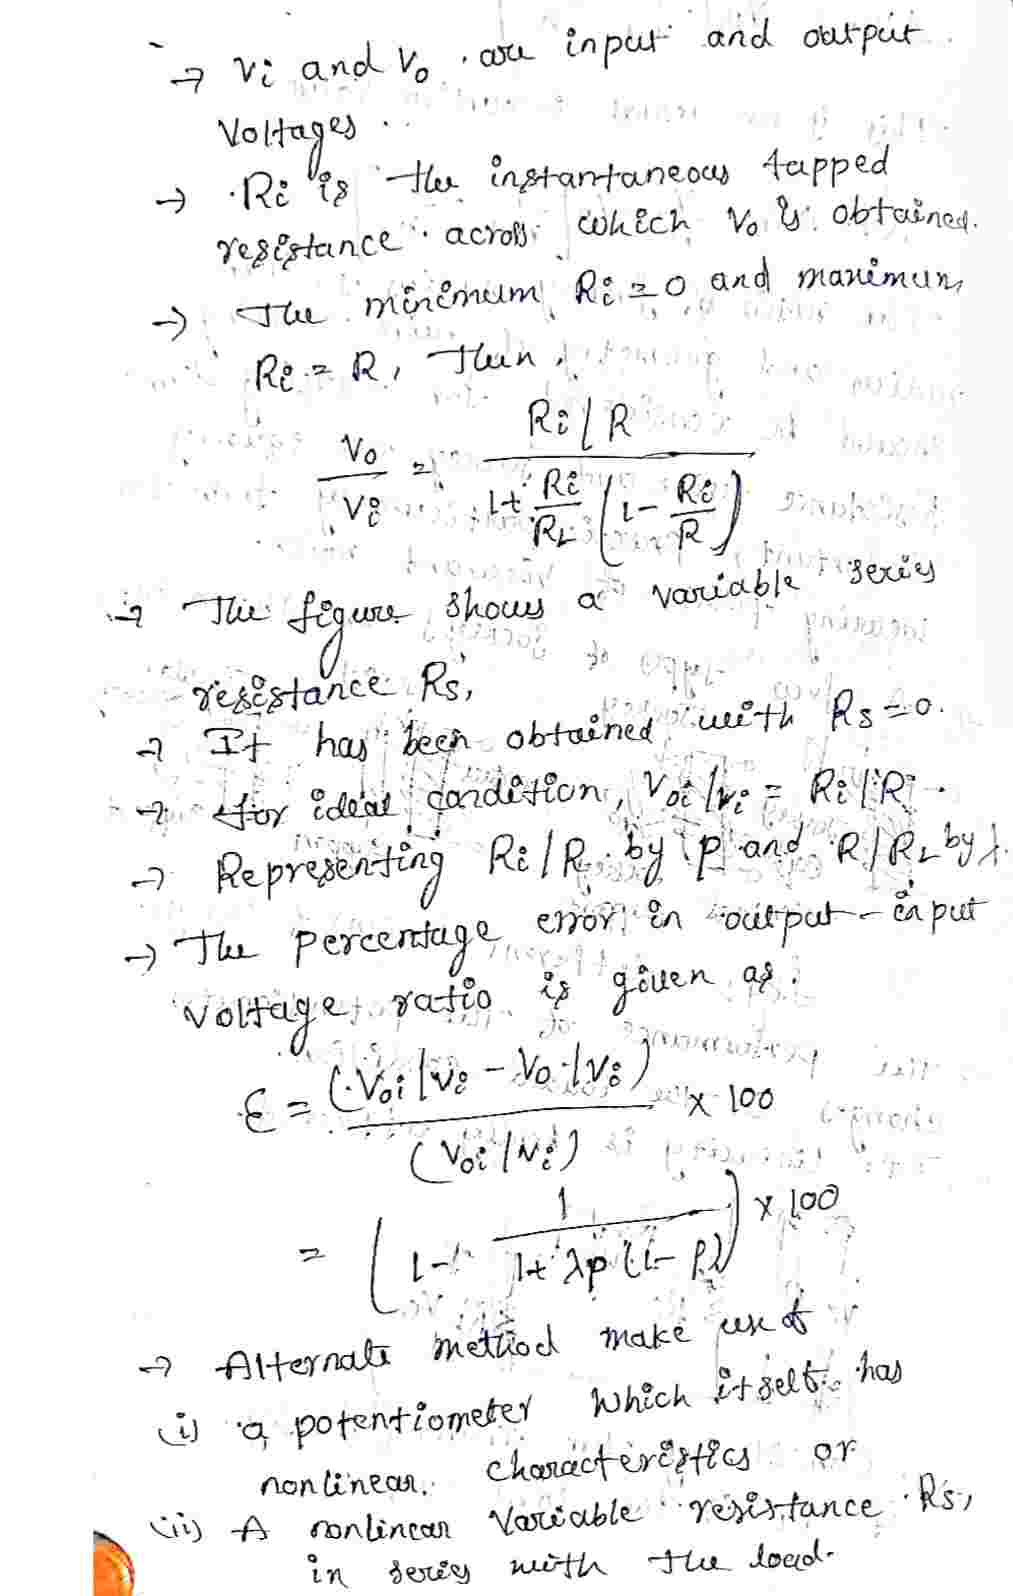 → Vi and Vo are input and output
Voltages.
→ Ri is the instantaneous tapped
resistance across which Vo is obtained.
→ The minimum Ri = 0 and maximum
Ri = R, then,
Vo/Vi = (Ri/R) / (1 + Ri/RL (1 - Ri/R))
→ The figure shows a variable series
resistance Rs,
→ It has been obtained with Rs = 0.
→ for ideal condition, Voi/vi = Ri/R.
→ Representing Ri/R by p and R/RL by λ.
→ The percentage error in output-input
voltage ratio is given as.
ε = (Voi/Vi - Vo/Vi) / (Voi/Vi) × 100
= (1 - 1 / (1 + λp (1 - p))) × 100
→ Alternate method make use of
(i) a potentiometer which itself has
nonlinear characteristics or
(ii) A nonlinear variable resistance Rs,
in series with the load.